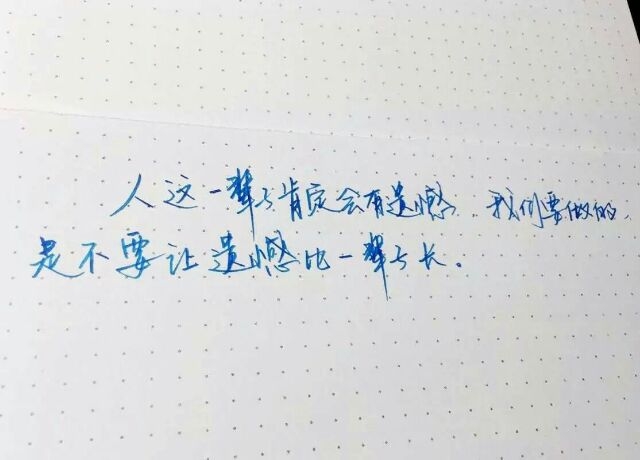 人这一辈子肯定会有遗憾，我们要做的，
是不要让遗憾比一辈子长。